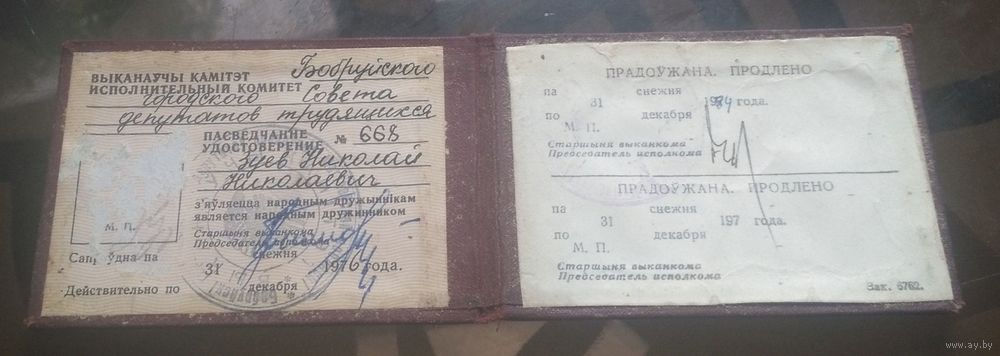 ВЫКАНАЎЧЫ КАМІТЭТ Бобруйского
ИСПОЛНИТЕЛЬНЫЙ КОМИТЕТ
городского Совета
депутатов трудящихся
ПАСВЕДЧАННЕ
УДОСТОВЕРЕНИЕ № 668
Зуев Николай
Николаевич
з'яўляецца народным дружыннікам
является народным дружинником
Старшыня выканкома
Председатель исполкома
М. П.
Сапраўдна на снежня
31 1976 года.
Действительно по декабря
ПРАДОЎЖАНА. ПРОДЛЕНО
па снежня
31 1984 года.
по декабря
М. П.
Старшыня выканкома
Председатель исполкома
ПРАДОЎЖАНА. ПРОДЛЕНО
па снежня
31 197 года.
по декабря
М. П.
Старшыня выканкома
Председатель исполкома
Зак. 6762.
www.ay.by